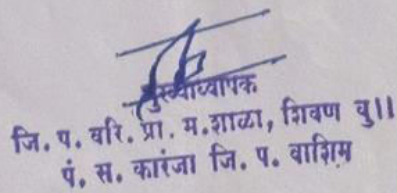 मुख्याध्यापक
जि. प. वरि. प्रा. म. शाळा, शिवण बु॥
पं. स. कारंजा जि. प. वाशिम